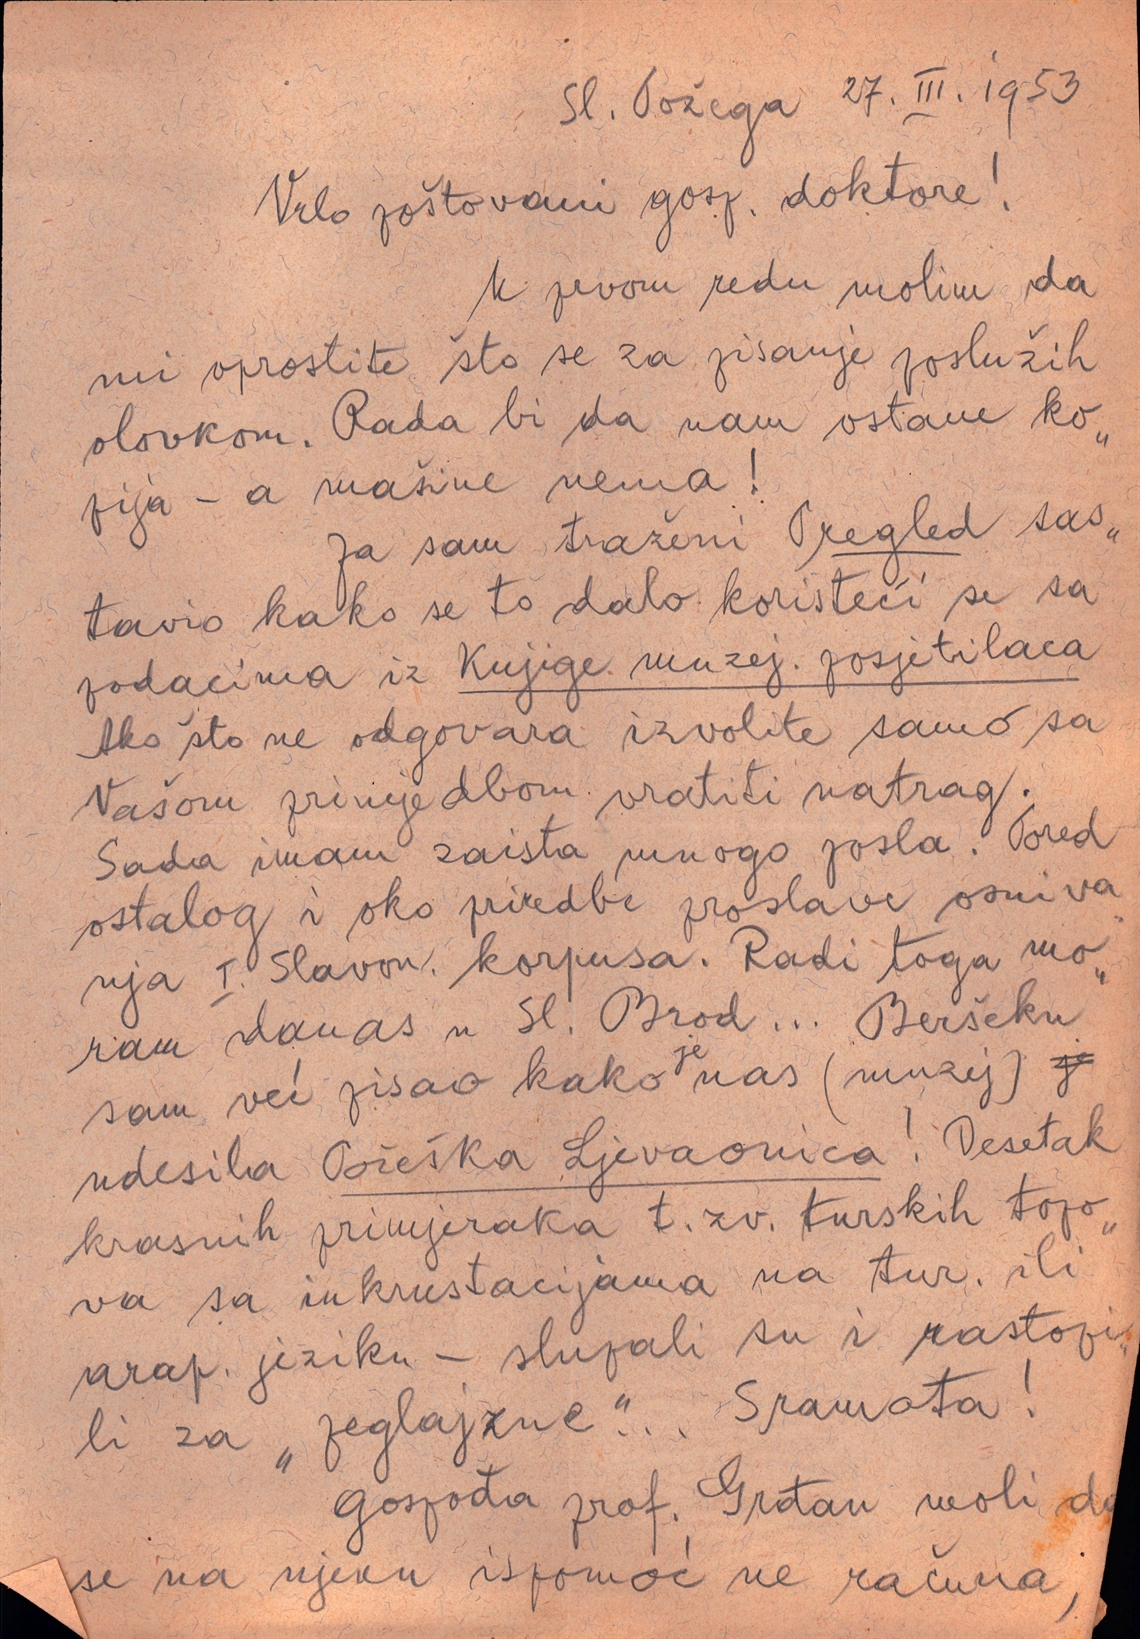 Sl. Požega 27. III. 1953
Vrlo poštovani gosp. doktore!
U prvom redu molim da
mi oprostite što se za pisanje poslužih
olovkom. Rada bi da nam ostane ko„
pija – a mašine nema!
Ja sam traženi Pregled sas„
tavio kako se to dalo koristeći se sa
podacima iz Knjige muzej. posjetilaca
Ako što ne odgovara izvolite samo sa
Vašom primjedbom vratiti natrag.
Sada imam zaista mnogo posla. Pored
ostalog i oko priredbe proslave osniva„
nja I. Slavon. korpusa. Radi toga mo„
ram danas u Sl. Brod... Beršeku
sam već pisao kako je nas (muzej) je
udesila Požeška Ljevaonica! Desetak
krasnih primjeraka t. zv. turskih topo„
va sa inkrustacijama na tur. ili
arap. jeziku – slupali su i rastopi„
li za „peglajzne“... Sramota!
Gospođa prof. Grđan moli da
se na njenu ispomoć ne računa,